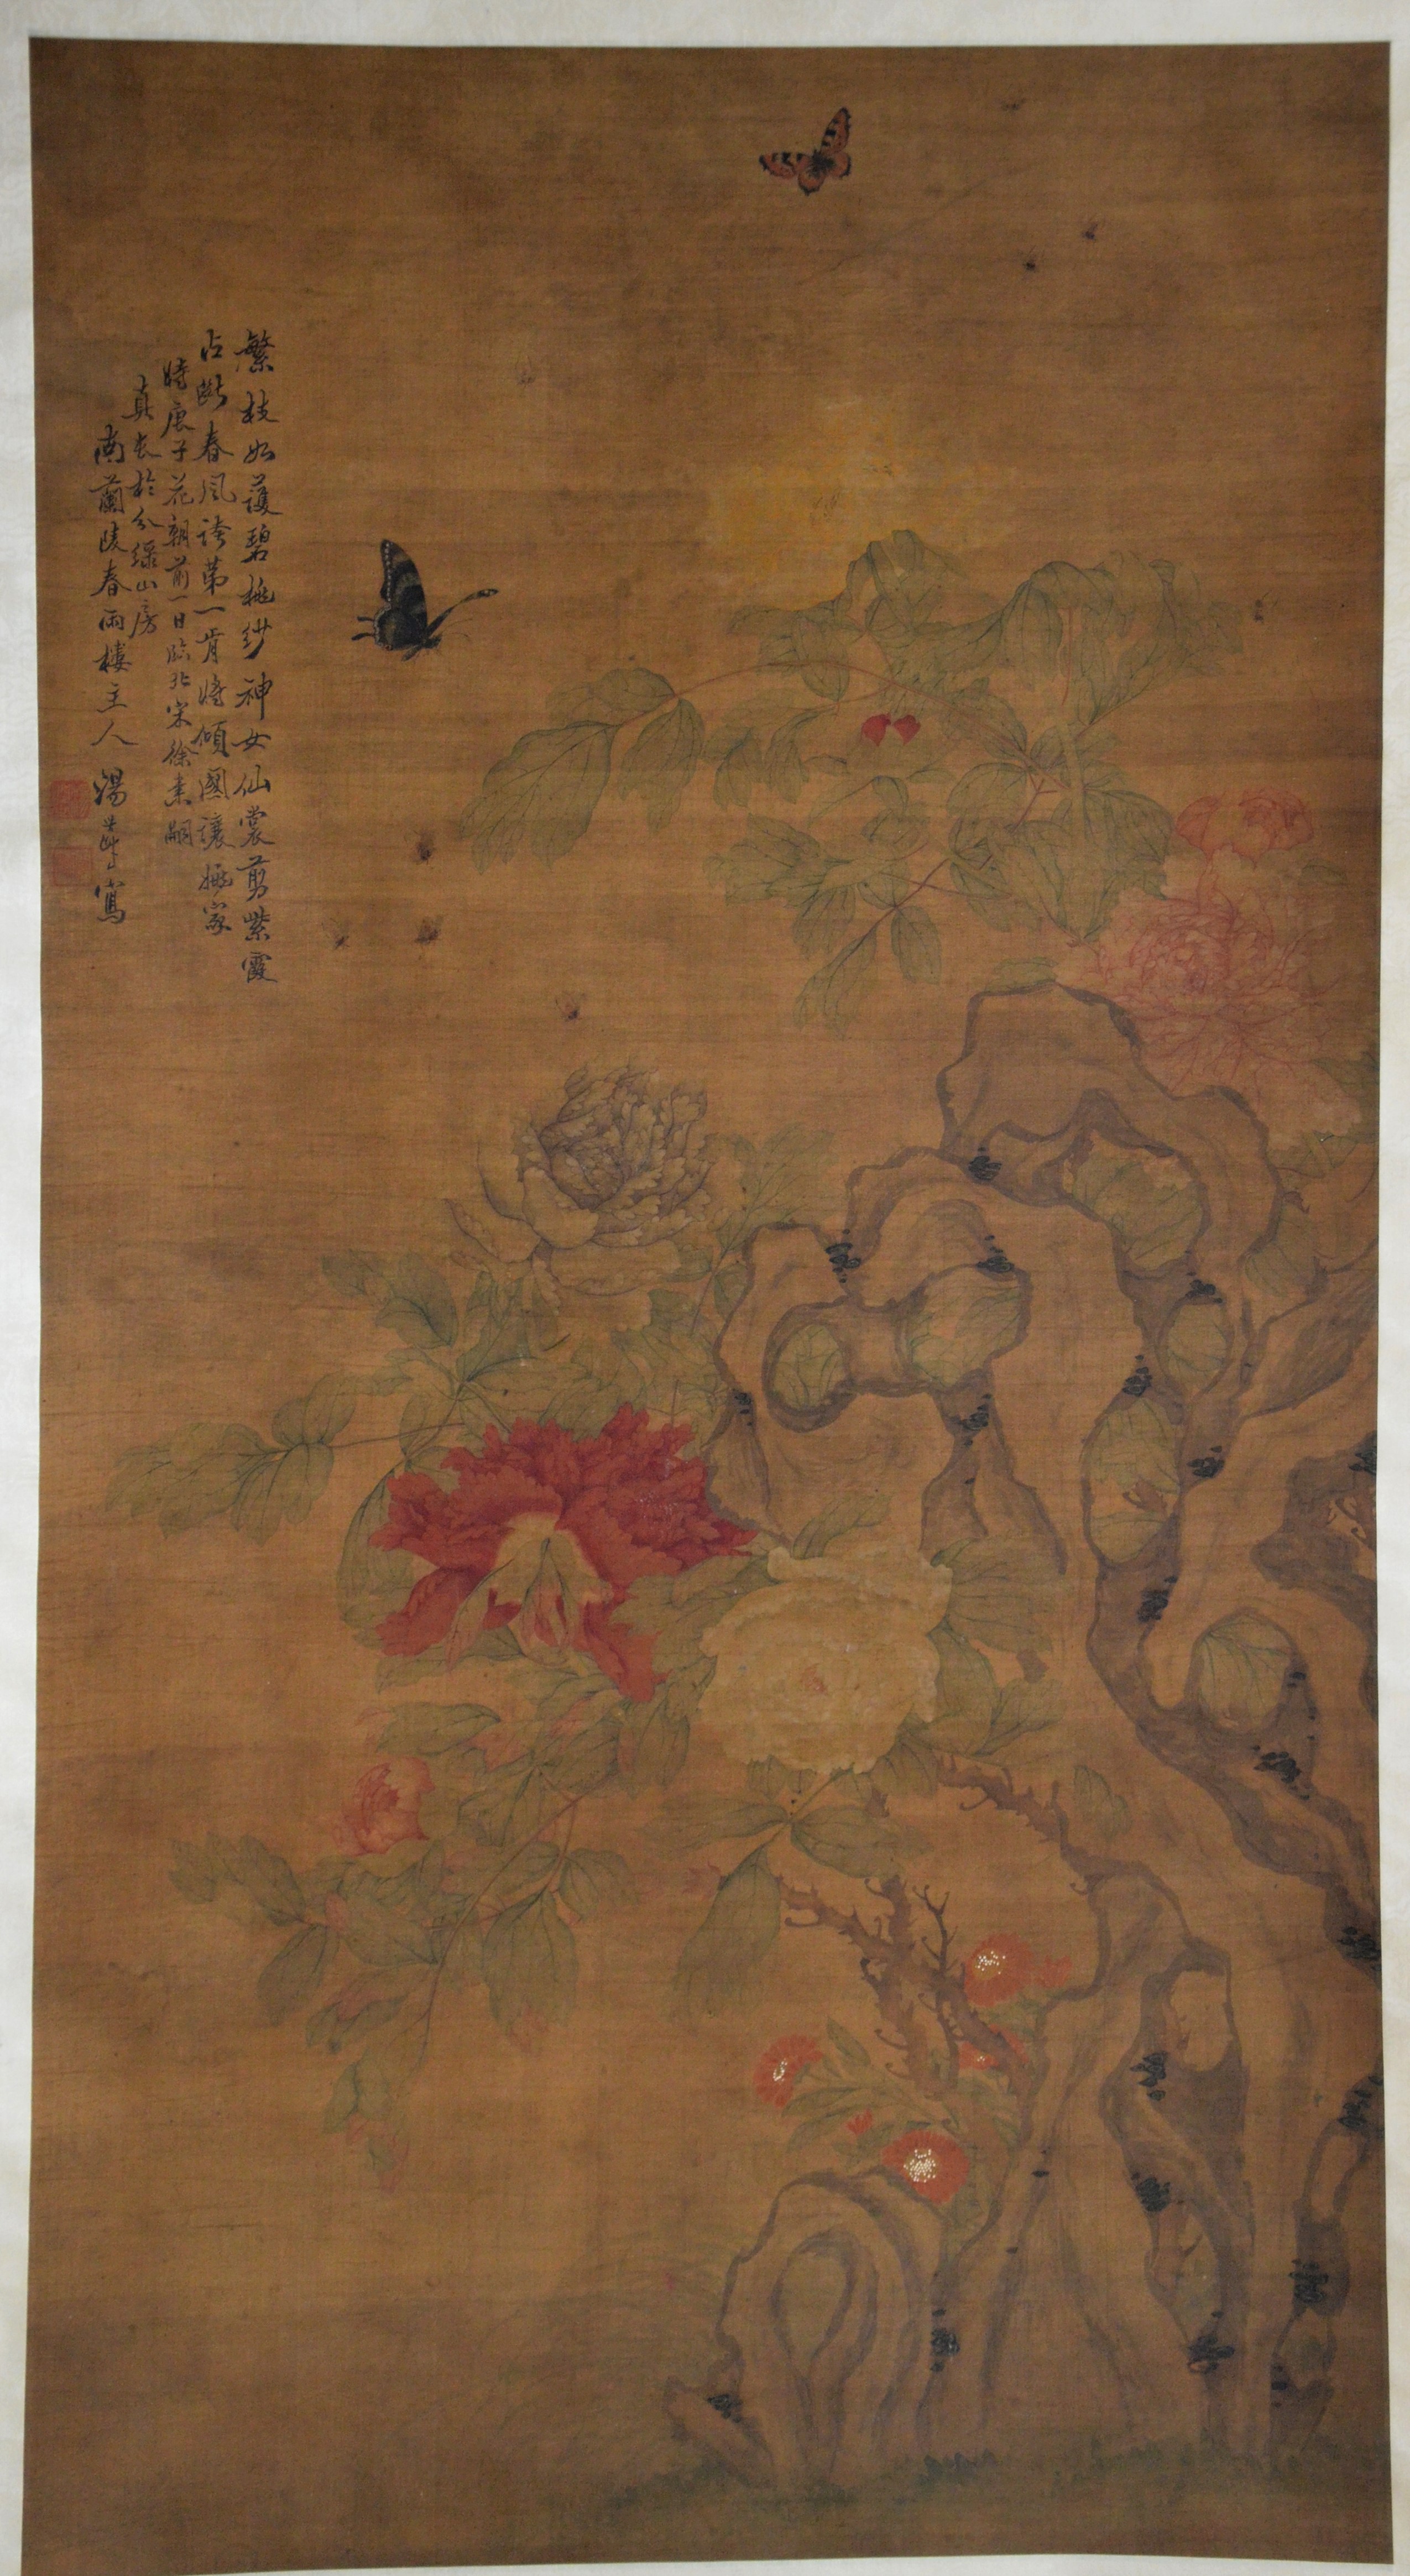 繁枝如護碧桃紗神女仙裳剪紫霞
占斷春風誇第一肯將傾國讓姚家
時庚子花朝前一日臨北宋徐崇嗣
真本於分綠山房
南蘭陵春雨樓主人湯世